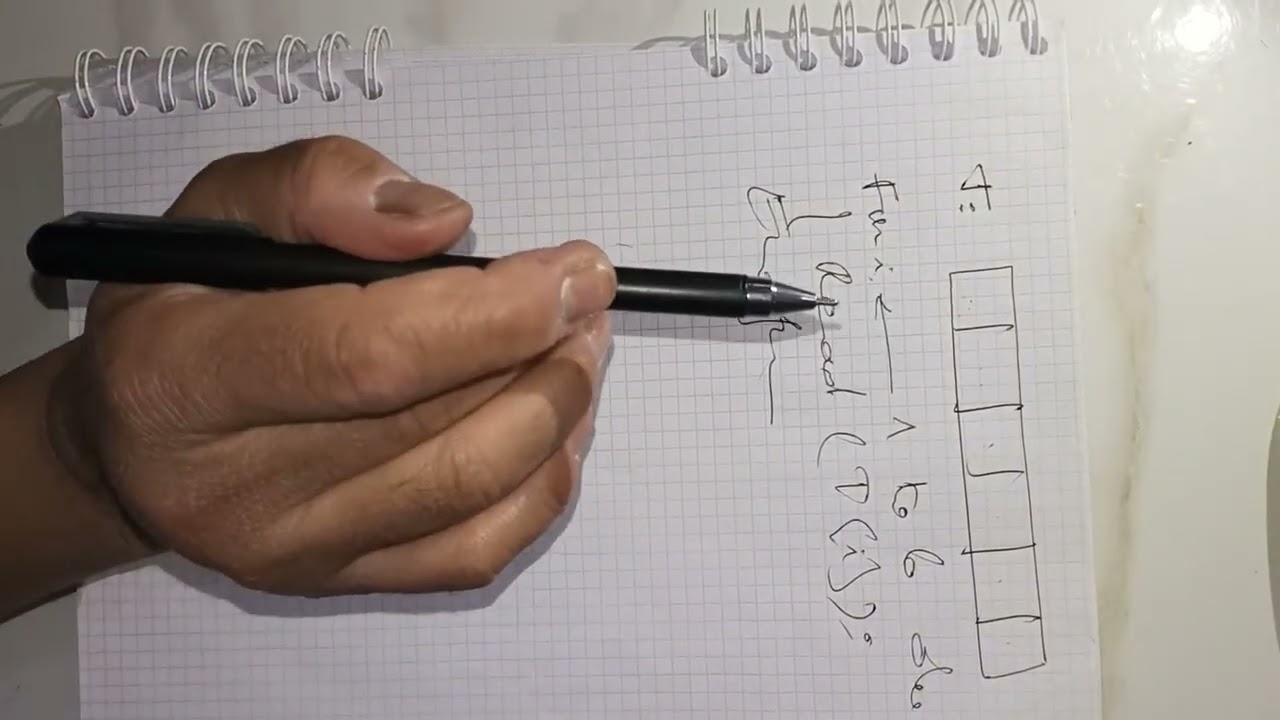 T:
For i ← 1 to 6 do
Read (T(i));